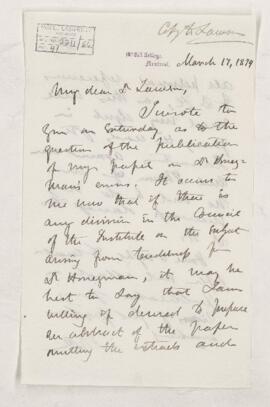 McGill College,
Montreal.
March 17, 1879
My dear Dr Lawson,
I wrote to
you on Saturday as to the
question of the publication
of my paper on Dr Honey-
man's errors. It occurs to
me now that if there is
any division in the Council
of the Institute on the subject
arising from tenderness for
Dr Honeyman, it may be
best to say that I am
willing if desired to prepare
an abstract of the paper
omitting the extracts and